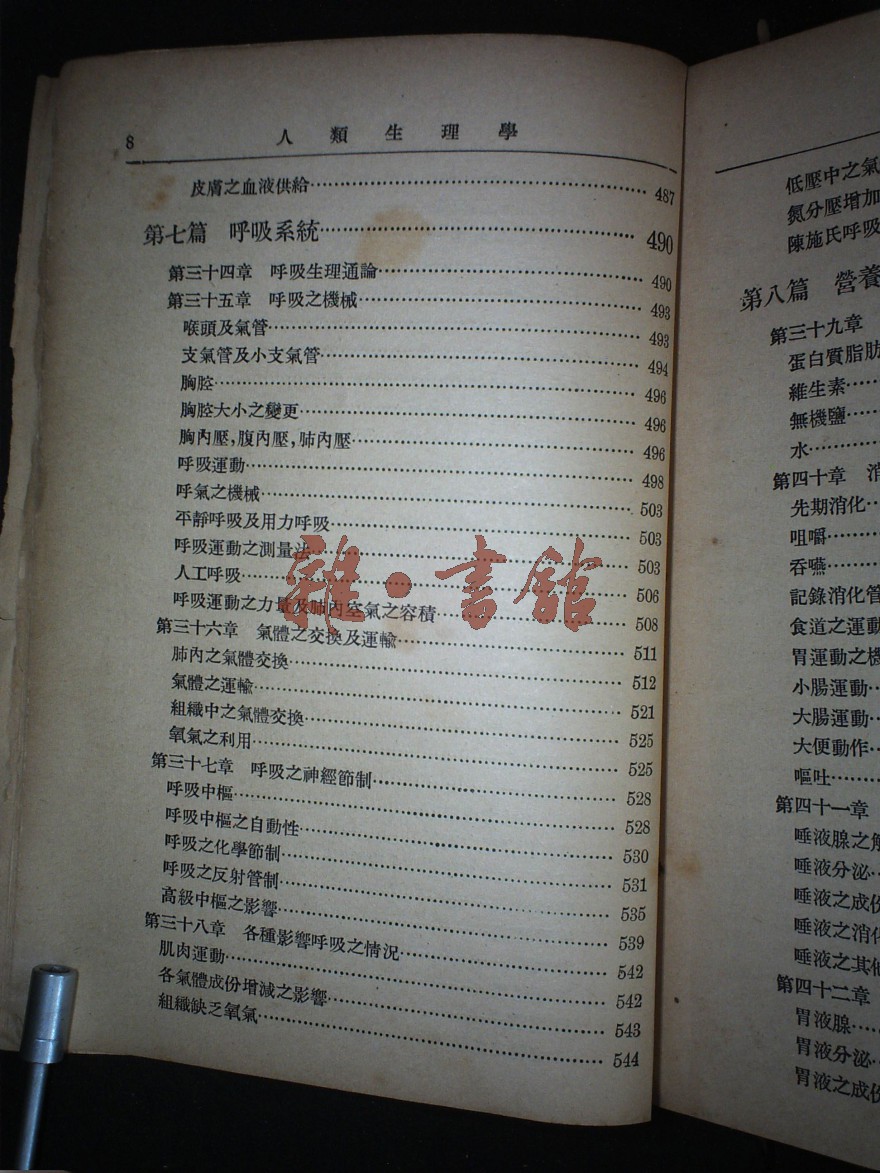 8 人類生理學
皮膚之血液供給 487
第七篇 呼吸系統 490
第三十四章 呼吸生理通論 490
第三十五章 呼吸之機械 493
喉頭及氣管 493
支氣管及小支氣管 494
胸腔 496
胸腔大小之變更 496
胸內壓,腹內壓,肺內壓 496
呼吸運動 498
呼氣之機械 503
平靜呼吸及用力呼吸 503
呼吸運動之測量法 503
人工呼吸 506
呼吸運動之力量及肺內空氣之容積 508
第三十六章 氣體之交換及運輸 511
肺內之氣體交換 512
氣體之運輸 521
組織中之氣體交換 525
氧氣之利用 525
第三十七章 呼吸之神經節制 528
呼吸中樞 528
呼吸中樞之自動性 530
呼吸之化學節制 531
呼吸之反射管制 535
高級中樞之影響 539
第三十八章 各種影響呼吸之情況 542
肌肉運動 542
各氣體成份增減之影響 543
組織缺乏氧氣 544
雜·書館
低壓中之氣
氮分壓增加
陳施氏呼吸
第八篇 營養
第三十九章
蛋白質脂肪
維生素
無機鹽
水
第四十章 消
先期消化
咀嚼
吞嚥
記錄消化管
食道之運動
胃運動之機
小腸運動
大腸運動
大便動作
嘔吐
第四十一章
唾液腺之解
唾液分泌
唾液之成份
唾液之消化
唾液之其他
第四十二章
胃液腺
胃液分泌
胃液之成份